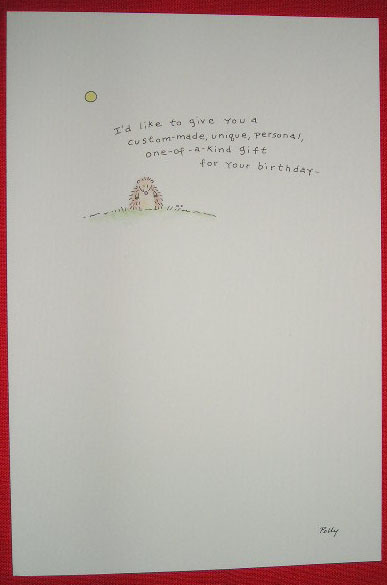 I'd like to give you a
custom-made, unique, personal,
one-of-a-kind gift
for your birthday-
Polly